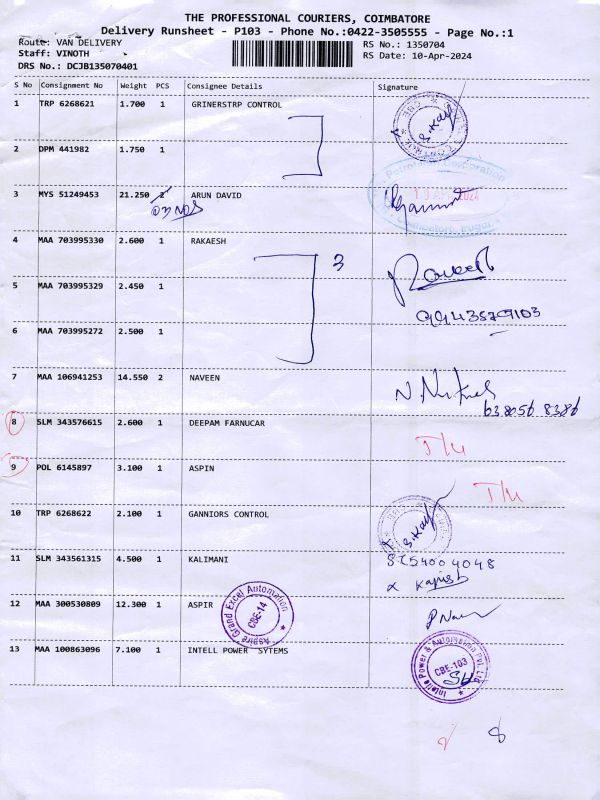 THE PROFESSIONAL COURIERS, COIMBATORE
Delivery Runsheet - P103 - Phone No.:0422-3505555 - Page No.:1
Route: VAN DELIVERY
RS No.: 1350704
Staff: VINOTH
RS Date: 10-Apr-2024
DRS No.: DCJB135070401
S No Consignment No Weight PCS Consignee Details Signature
1 TRP 6268621 1.700 1 GRINERSTRP CONTROL
S.Kay
2 DPM 441982 1.750 1
3 MYS 51249453 21.250 2 ARUN DAVID
4 MAA 703995330 2.600 1 RAKAESH
3
5 MAA 703995329 2.450 1
6 MAA 703995272 2.500 1
7 MAA 106941253 14.550 2 NAVEEN
8 SLM 343576615 2.600 1 DEEPAM FARNUCAR
T/U
9 POL 6145897 3.100 1 ASPIN
T/U
10 TRP 6268622 2.100 1 GANNIORS CONTROL
S.Kay
11 SLM 343561315 4.500 1 KALIMANI
12 MAA 300530809 12.300 1 ASPIR
Aspire Grand Excel Automation
CBE-14
13 MAA 100863096 7.100 1 INTELL POWER SYTEMS
CBE-103
8